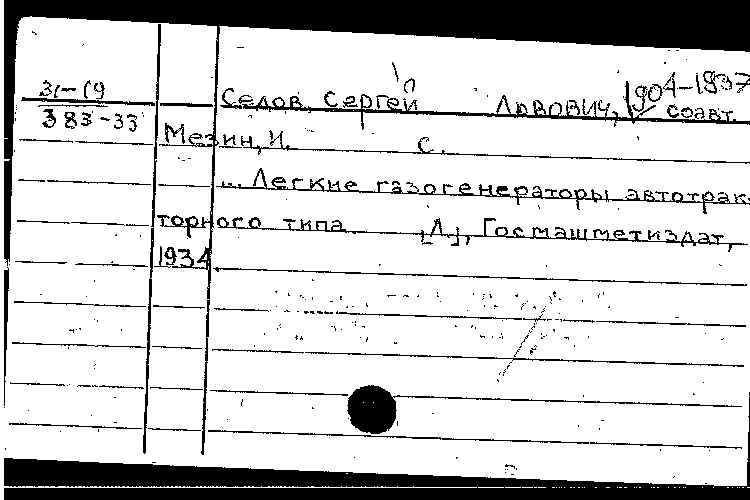 31-19
383-33
Седов, Сергей Львович, 1904-1937
соавт.
Мезин, И. С.
... Легкие газогенераторы автотрак-
торного типа [Л], Госмашметиздат,
1934.